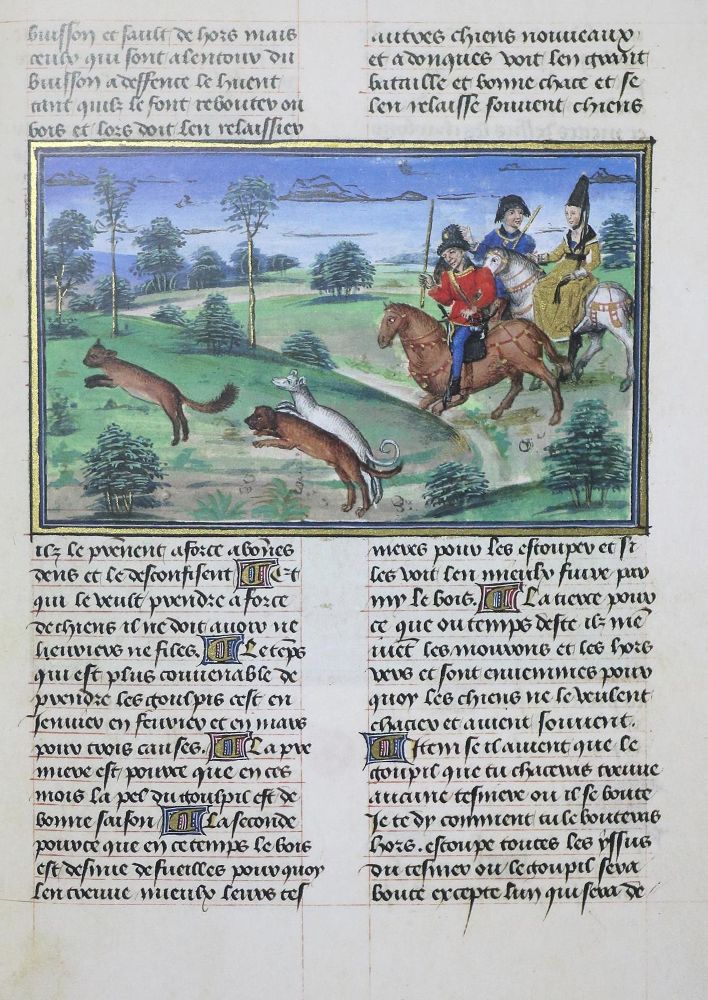 buisson et sault de hors mais
ceulx qui sont alentour du
buisson a deffence le huent
tant quilz le font rebouter ou
bois et lors doit len relaissier
ilz le prennent a force a bonnes
dens et le desconfisent Et
qui le veult prendre a force
de chiens il ne doit avoir ne
lieuriers ne files. Le temps
qui est plus conuenable de
prendre les goulpis cest en
Jenuier en feurier et en mars
pour trois causes. La pre
miere est pource que en ces
mois la pel du goulpil est de
bonne saison La seconde
pource que en ce temps le bois
est desnue de fueilles pourquoy
len treuue mieulx leurs tes
autres chiens nouueaux
et adonques voit len grant
bataille et bonne chace et se
len relaisse souuent chiens
nieres pour les estouper et si
les voit len mieulx fuire par
my le bois. La tierce pour
ce que ou temps deste ilz men
iuent les mourons et les hors
vers et sont enuenimes pour
quoy les chiens ne le veulent
chacier et auient souuent.
Item se il auient que le
goupil que tu chaceras treuue
aucune tesniere ou il se boute
Je te dy comment tu le bouteras
hors. estoupe toutes les yssus
du tesnier ou le goupil sera
boute excepte lun qui sera de